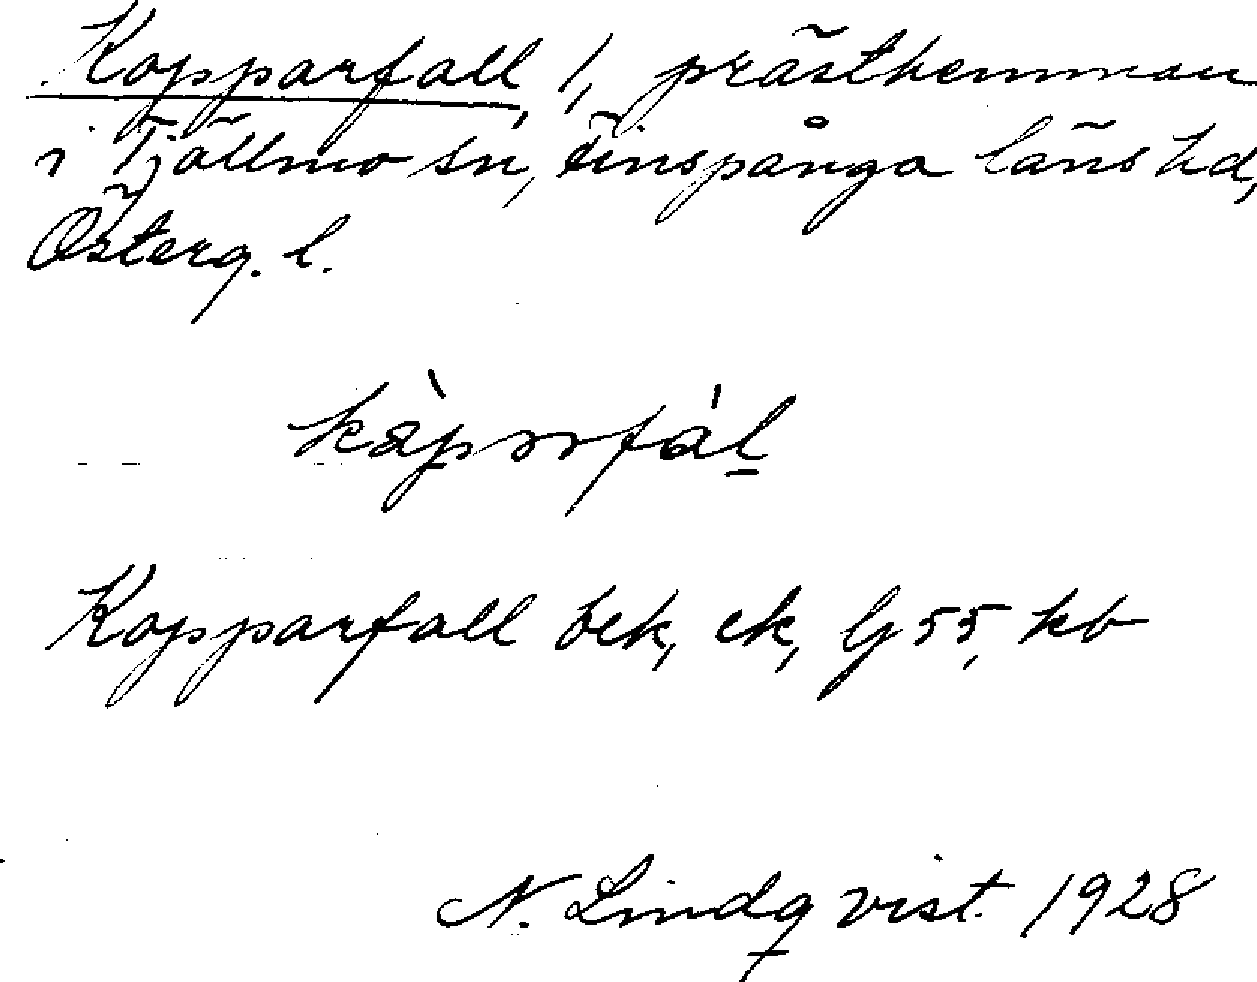 Kopparfall, 1, prästhemman
i Tjällmo sn, Finspånga läns hd,
Österg. l.
Kopparfall bek, ek, Gj 55, kb
N. Lindqvist. 1928